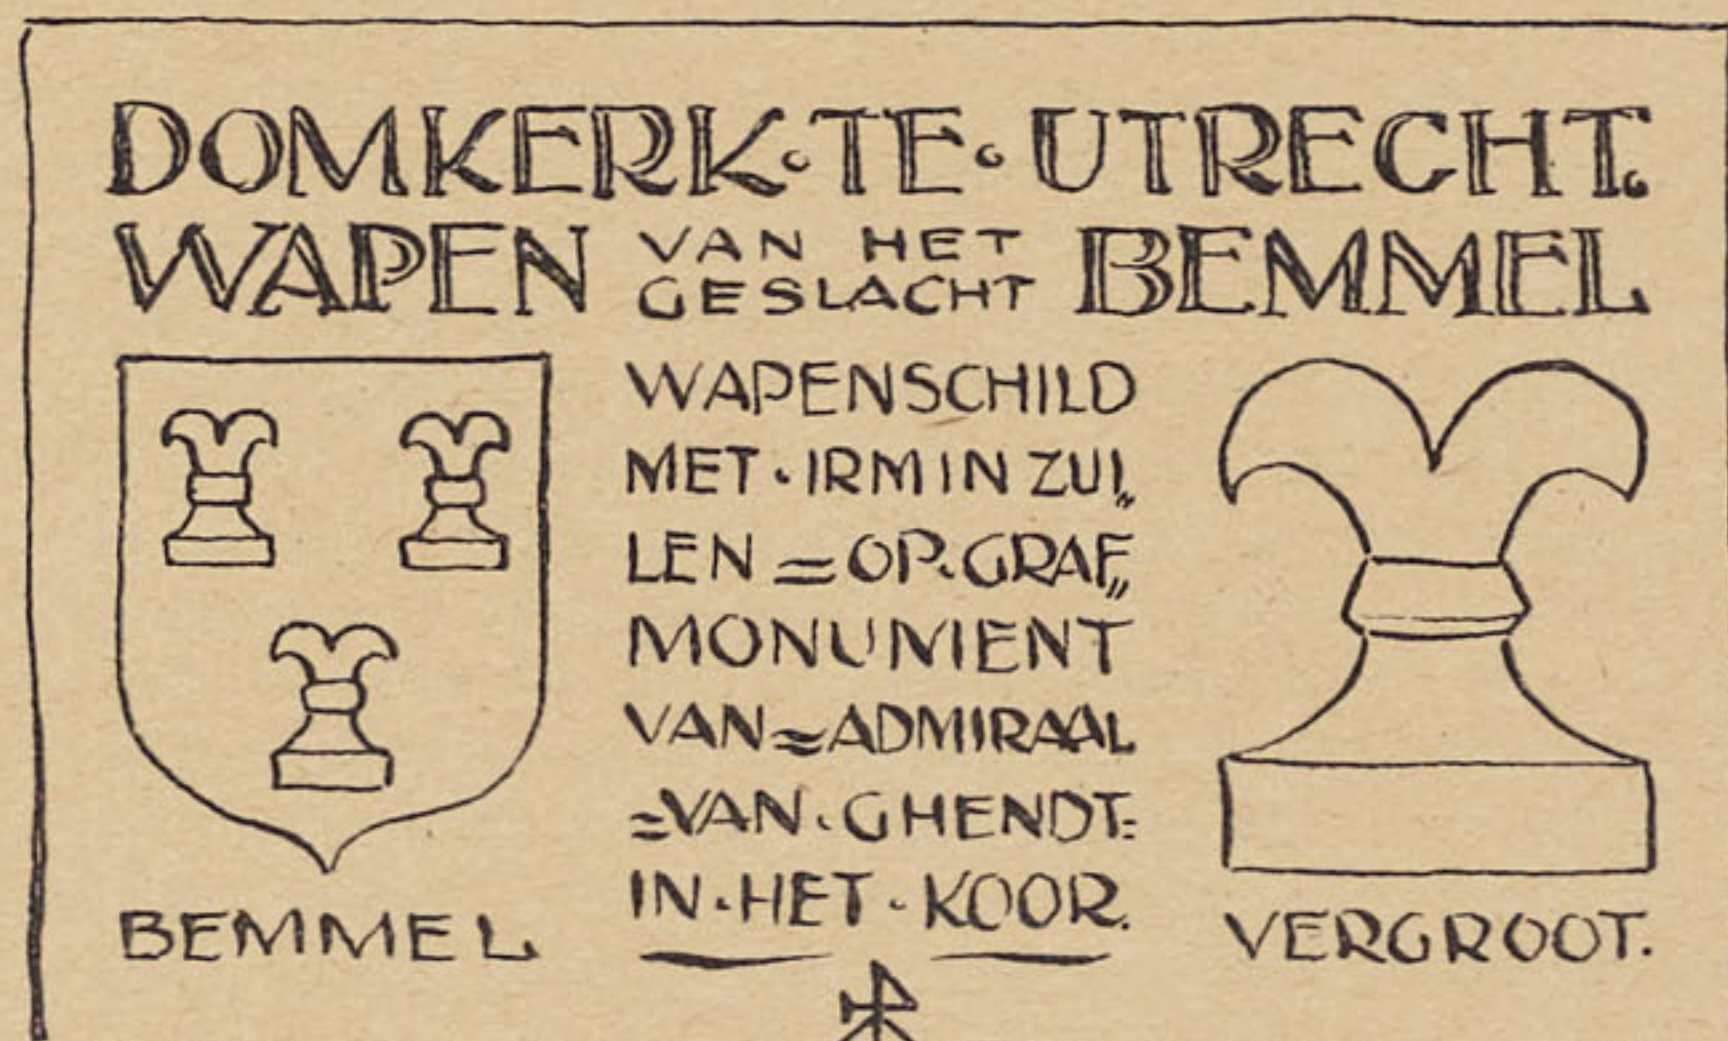 DOMKERK·TE·UTRECHT.
WAPEN VAN HET GESLACHT BEMMEL
WAPENSCHILD
MET·IRMINZUI„
LEN = OP·GRAF„
MONUMENT
VAN = ADMIRAAL
=VAN·GHENDT=
IN·HET·KOOR.
BEMMEL
VERGROOT.